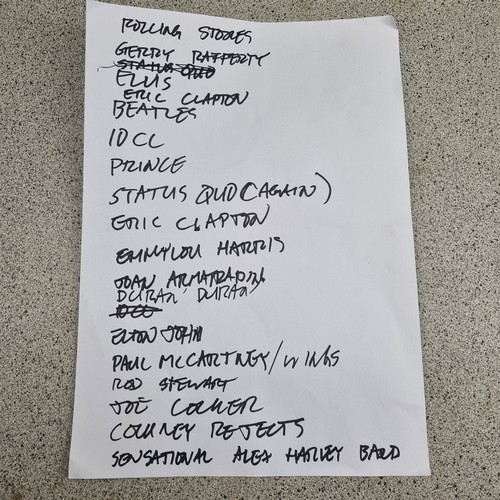 ROLLING STONES
GERRY RAFFERTY
STATUS QUO
ELVIS
ERIC CLAPTON
BEATLES
10CC
PRINCE
STATUS QUO (AGAIN)
ERIC CLAPTON
EMMYLOU HARRIS
JOAN ARMATRADING
DURAN DURAN
10CC
ELTON JOHN
PAUL MCCARTNEY/WINGS
ROD STEWART
JOE COCKER
COCKNEY REJECTS
SENSATIONAL ALEX HARVEY BAND